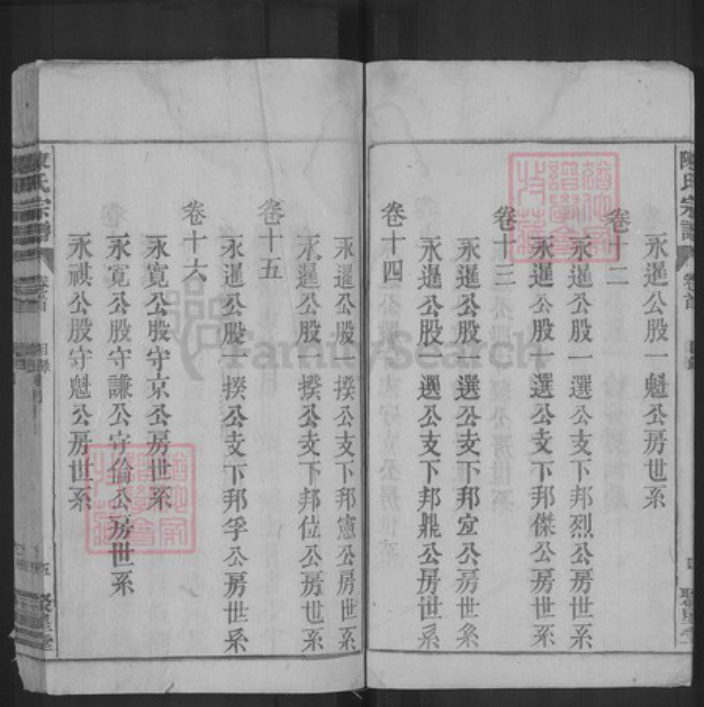 陳氏宗譜
卷首
永暹公股一魁公房世系
卷十二
永暹公股一選公支下邦烈公房世系
永暹公股一選公支下邦傑公房世系
卷十三
永暹公股一選公支下邦宜公房世系
永暹公股一選公支下邦鼎公房世系
卷十四
永暹公股一揆公支下邦憲公房世系
永暹公股一揆公支下邦位公房世系
卷十五
永暹公股一揆公支下邦孚公房世系
卷十六
永寬公股守京公房世系
永寬公股守謙公守倫公房世系
永祺公股守魁公房世系
陳氏宗譜
卷首
目錄
五
聚星堂
FamilySearch